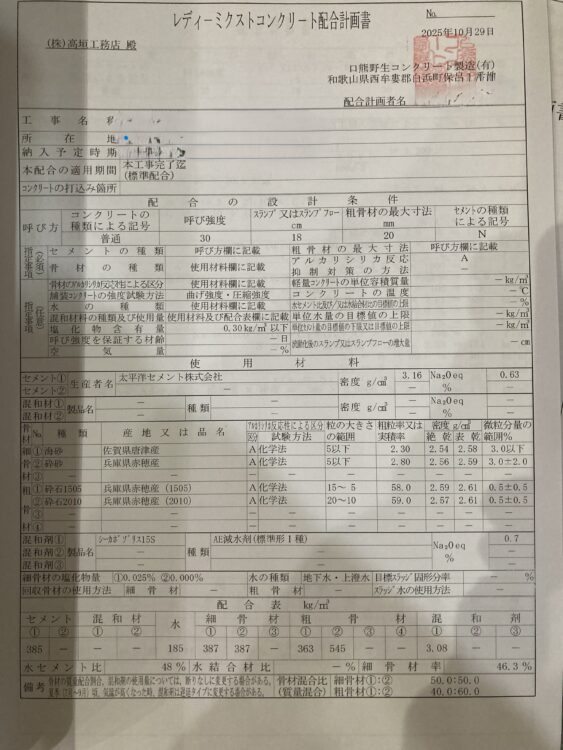 レディーミクストコンクリート配合計画書
No.
2025年10月29日
(株)高垣工務店 殿
口熊野生コンクリート製造(有)
和歌山県西牟婁郡白浜町保呂
配合計画者名
工事名称
所在地
納入予定時期
本配合の適用期間 本工事完了迄 (標準配合)
コンクリートの打込み箇所
配合の設計条件
呼び方 コンクリートの種類による記号 呼び強度 スランプ又はスランプフロー cm 粗骨材の最大寸法 mm セメントの種類による記号
普通 30 18 20 N
指定事項 (必須) セメントの種類 呼び方欄に記載 粗骨材の最大寸法 呼び方欄に記載
骨材の種類 使用材料欄に記載 アルカリシリカ反応抑制対策の方法 A
骨材のアルカリシリカ反応性による区分 使用材料欄に記載 軽量コンクリートの単位容積質量 - kg/m³
指定事項 (任意) 舗装コンクリートの強度試験方法 曲げ強度・圧縮強度 コンクリートの温度 - ℃
水の種類 使用材料欄に記載 水セメント比及び/又は水結合材比の目標値の上限 - %
混和材料の種類及び使用量 使用材料及び配合表欄に記載 単位水量の目標値の上限 - kg/m³
塩化物含有量 0.30kg/m³以下 単位セメント量の目標値の下限又は目標値の上限 - kg/m³
呼び強度を保証する材齢 - 日 流動化後のスランプ又はスランプフローの増大量 - cm
空気量 - %
使用材料
セメント① 生産者名 太平洋セメント株式会社 密度 g/cm³ 3.16 Na₂Oeq % 0.63
セメント② - - -
混和材① 製品名 - 種類 - 密度 g/cm³ - Na₂Oeq % -
混和材② - - - -
骨材 No. 種類 産地又は品名 アルカリシリカ反応性による区分 区分 試験方法 粒の大きさの範囲 粗粒率又は実積率 密度 g/cm³ 絶乾 表乾 微粒分量の範囲%
細骨材 ① 海砂 佐賀県唐津産 A 化学法 5以下 2.30 2.54 2.58 3.0以下
② 砕砂 兵庫県赤穂産 A 化学法 5以下 2.80 2.56 2.59 3.0±2.0
③ - - - - - - - - -
粗骨材 ① 砕石1505 兵庫県赤穂産 (1505) A 化学法 15～5 58.0 2.59 2.61 0.5±0.5
② 砕石2010 兵庫県赤穂産 (2010) A 化学法 20～10 59.0 2.57 2.61 0.5±0.5
③ - - - - - - - - -
④ - - - - - - - - -
混和剤① 製品名 シーカポゾリス15S 種類 AE減水剤(標準形Ⅰ種) Na₂Oeq % 0.7
混和剤② - - -
混和剤③ - - -
細骨材の塩化物量 ①0.025% ②0.000% 水の種類 地下水・上澄水 目標スラッジ固形分率 - %
回収骨材の使用方法 細骨材 - 粗骨材 - スラッジ水の使用方法 -
配合表 kg/m³
セメント 混和材 水 細骨材 粗骨材 混和剤
① ② ① ② ① ② ③ ① ② ③ ④ ① ② ③
385 - - - 185 387 387 - 363 545 - - 3.08 - -
水セメント比 48% 水結合材比 - % 細骨材率 46.3%
備考 骨材の質量配合割合、混和剤の使用量については、断りなしに変更する場合がある。 骨材混合比 細骨材①:② 50.0:50.0
夏季(7月～9月)頃、気温が高くなった時、混和剤は遅延タイプに変更する場合がある。 (質量混合) 粗骨材①:② 40.0:60.0